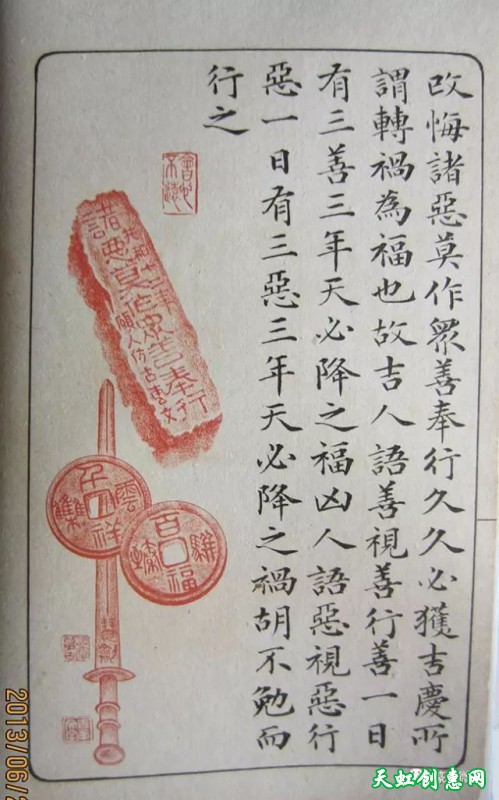 改悔諸惡莫作眾善奉行久久必獲吉慶所
謂轉禍為福也故吉人語善視善行善一日
有三善三年天必降之福凶人語惡視惡行
惡一日有三惡三年天必降之禍胡不勉而
行之
諸惡莫作眾善奉行
千祥雲集
百福駢臻
慧劍
2013/06/
天虹创惠网